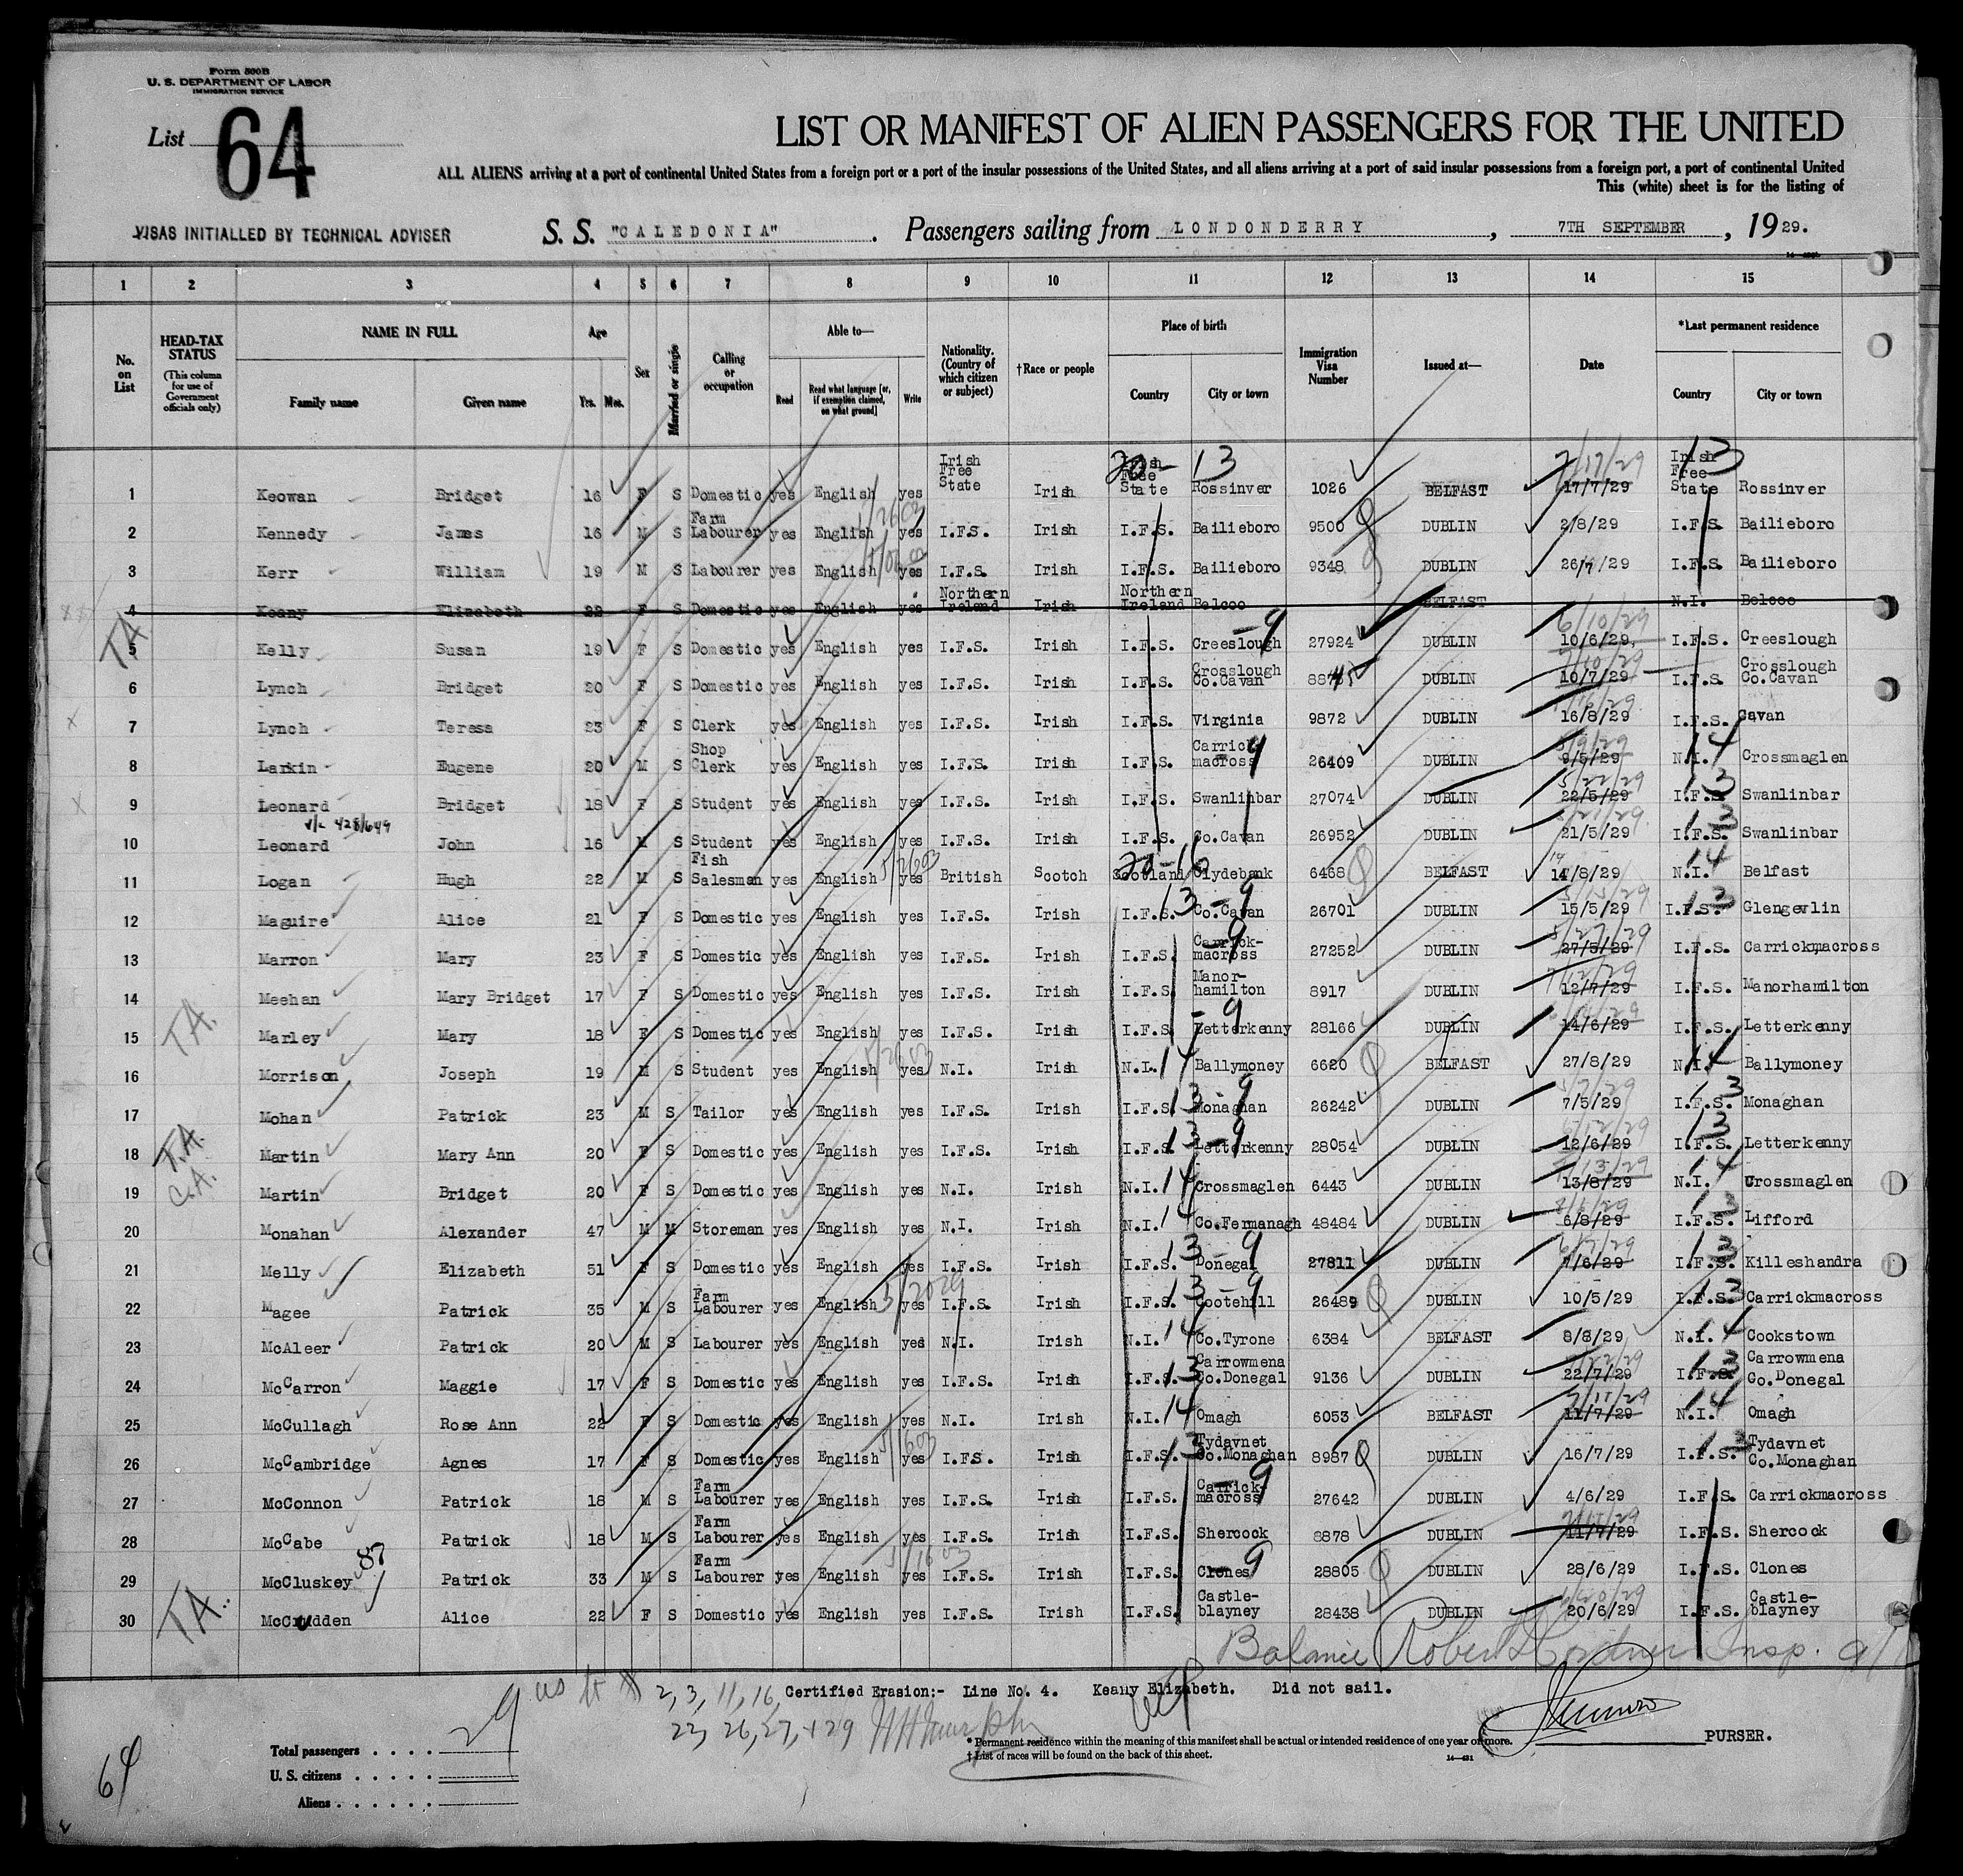 Form 500B
U. S. DEPARTMENT OF LABOR
IMMIGRATION SERVICE
List 64
LIST OR MANIFEST OF ALIEN PASSENGERS FOR THE UNITED
ALL ALIENS arriving at a port of continental United States from a foreign port or a port of the insular possessions of the United States, and all aliens arriving at a port of said insular possessions from a foreign port, a port of continental United
This (white) sheet is for the listing of
VISAS INITIALLED BY TECHNICAL ADVISER
S. S. "CALEDONIA". Passengers sailing from LONDONDERRY, 7TH SEPTEMBER, 1929.
1 2 3 4 5 6 7 8 9 10 11 12 13 14 15
No. on List
HEAD-TAX STATUS (This column for use of Government officials only)
NAME IN FULL Family name Given name
Age Yrs. Mos.
Sex
Married or single
Calling or occupation
Able to— Read Read what language [or, if exemption claimed, on what ground] Write
Nationality. (Country of which citizen or subject)
†Race or people
Place of birth Country City or town
Immigration Visa Number
Issued at—
Date
*Last permanent residence Country City or town
1 Keowan Bridget 16 F S Domestic yes English yes Irish Free State Irish Irish Free State Rossinver 1026 BELFAST 17/7/29 Irish Free State Rossinver
2 Kennedy James 16 M S Farm Labourer yes English yes I.F.S. Irish I.F.S. Bailieboro 9500 DUBLIN 2/8/29 I.F.S. Bailieboro
3 Kerr William 19 M S Labourer yes English yes I.F.S. Irish I.F.S. Bailieboro 9348 DUBLIN 26/7/29 I.F.S. Bailieboro
4 Keany Elizabeth 22 F S Domestic yes English yes Northern Ireland Irish Northern Ireland Belcoo BELFAST N.I. Belcoo
5 Kelly Susan 19 F S Domestic yes English yes I.F.S. Irish I.F.S. Creeslough 27924 DUBLIN 10/6/29 I.F.S. Creeslough
6 Lynch Bridget 20 F S Domestic yes English yes I.F.S. Irish I.F.S. Crosslough Co.Cavan DUBLIN 10/7/29 I.F.S. Crosslough Co.Cavan
7 Lynch Teresa 23 F S Clerk yes English yes I.F.S. Irish I.F.S. Virginia 9872 DUBLIN 16/8/29 I.F.S. Cavan
8 Larkin Eugene 20 M S Shop Clerk yes English yes I.F.S. Irish I.F.S. Carrickmacross 26409 DUBLIN 9/5/29 N.I. Crossmaglen
9 Leonard Bridget 18 F S Student yes English yes I.F.S. Irish I.F.S. Swanlinbar 27074 DUBLIN 22/5/29 I.F.S. Swanlinbar
10 Leonard John 16 M S Student yes English yes I.F.S. Irish I.F.S. Co.Cavan 26952 DUBLIN 21/5/29 I.F.S. Swanlinbar
11 Logan Hugh 22 M S Fish Salesman yes English yes British Scotch Scotland Clydebank 6468 BELFAST 14/8/29 N.I. Belfast
12 Maguire Alice 21 F S Domestic yes English yes I.F.S. Irish I.F.S. Co.Cavan 26701 DUBLIN 15/5/29 I.F.S. Glengevlin
13 Marron Mary 23 F S Domestic yes English yes I.F.S. Irish I.F.S. Carrick-macross 27252 DUBLIN 27/5/29 I.F.S. Carrickmacross
14 Meehan Mary Bridget 17 F S Domestic yes English yes I.F.S. Irish I.F.S. Manor-hamilton 8917 DUBLIN 12/7/29 I.F.S. Manorhamilton
15 T.A. Marley Mary 18 F S Domestic yes English yes I.F.S. Irish I.F.S. Letterkenny 28166 DUBLIN 14/6/29 I.F.S. Letterkenny
16 Morrison Joseph 19 M S Student yes English yes N.I. Irish N.I. Ballymoney 6620 BELFAST 27/8/29 N.I. Ballymoney
17 Mohan Patrick 23 M S Tailor yes English yes I.F.S. Irish I.F.S. Monaghan 26242 DUBLIN 7/5/29 I.F.S. Monaghan
18 T.A. Martin Mary Ann 20 F S Domestic yes English yes I.F.S. Irish I.F.S. Letterkenny 28054 DUBLIN 12/6/29 I.F.S. Letterkenny
19 C.A. Martin Bridget 20 F S Domestic yes English yes N.I. Irish N.I. Crossmaglen 6443 DUBLIN 13/8/29 N.I. Crossmaglen
20 Monahan Alexander 47 M M Storeman yes English yes N.I. Irish N.I. Co.Fermanagh 48484 DUBLIN 6/8/29 I.F.S. Lifford
21 Melly Elizabeth 51 F S Domestic yes English yes I.F.S. Irish I.F.S. Donegal 27811 DUBLIN 7/6/29 I.F.S. Killeshandra
22 Magee Patrick 35 M S Farm Labourer yes English yes I.F.S. Irish I.F.S. Cootehill 26489 DUBLIN 10/5/29 I.F.S. Carrickmacross
23 McAleer Patrick 20 M S Labourer yes English yes N.I. Irish N.I. Co.Tyrone 6384 BELFAST 8/8/29 N.I. Cookstown
24 McCarron Maggie 17 F S Domestic yes English yes I.F.S. Irish I.F.S. Carrowmena Co.Donegal 9136 DUBLIN 22/7/29 I.F.S. Carrowmena Co.Donegal
25 McCullagh Rose Ann 22 F S Domestic yes English yes N.I. Irish N.I. Omagh 6053 BELFAST 11/7/29 N.I. Omagh
26 McCambridge Agnes 17 F S Domestic yes English yes I.FS. Irish I.F.S. Tydavnet Co.Monaghan 8987 DUBLIN 16/7/29 I.F.S. Tydavnet Co.Monaghan
27 McConnon Patrick 18 M S Farm Labourer yes English yes I.F.S. Irish I.F.S. Carrick-macross 27642 DUBLIN 4/6/29 I.F.S. Carrickmacross
28 McCabe Patrick 18 M S Farm Labourer yes English yes I.F.S. Irish I.F.S. Shercock 8878 DUBLIN 11/7/29 I.F.S. Shercock
29 McCluskey Patrick 33 M S Farm Labourer yes English yes I.F.S. Irish I.F.S. Clones 28805 DUBLIN 28/6/29 I.F.S. Clones
30 T.A. McCrudden Alice 22 F S Domestic yes English yes I.F.S. Irish I.F.S. Castle-blayney 28438 DUBLIN 20/6/29 I.F.S. Castle-blayney
Balance Robert Insp.
2, 3, 11, 16, Certified Erasion:- Line No. 4. Keany Elizabeth. Did not sail.
22, 26, 27, + 29
*Permanent residence within the meaning of this manifest shall be actual or intended residence of one year or more.
† List of races will be found on the back of this sheet.
14—431
PURSER.
Total passengers . . . . 29
U. S. citizens . . . . .
Aliens . . . . . .
64